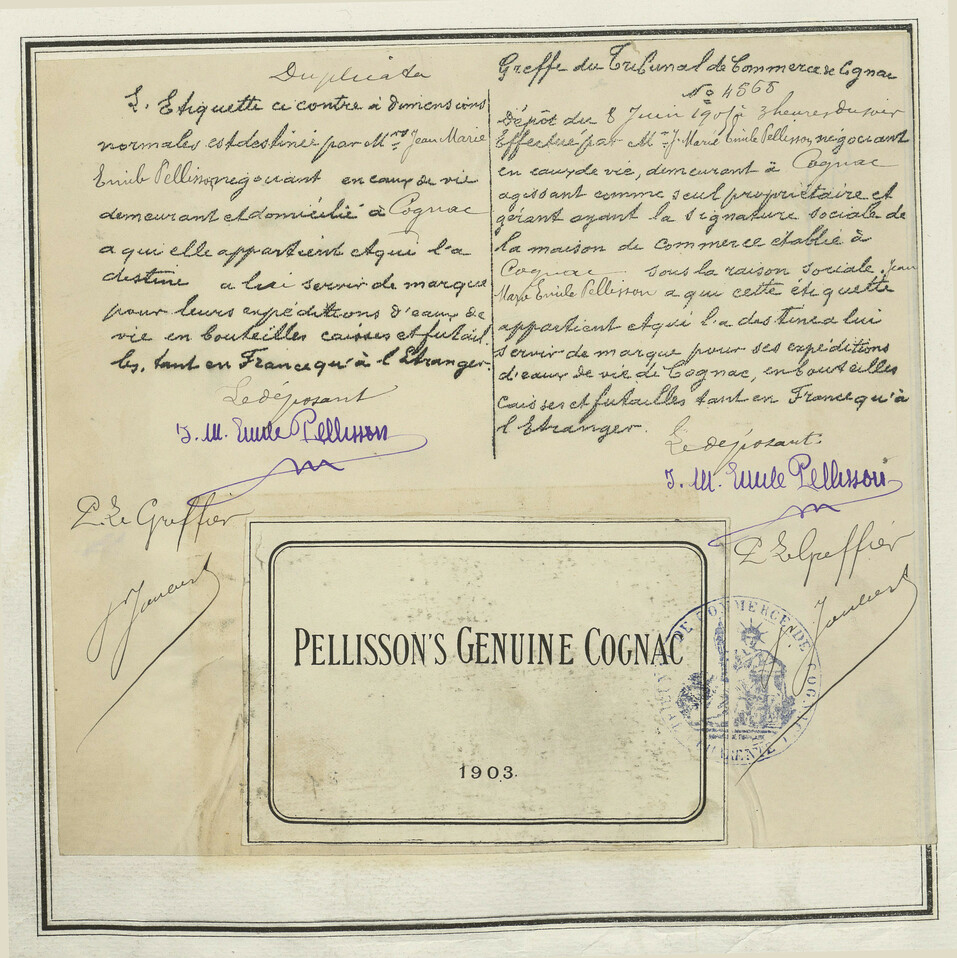 Duplicata
L'Etiquette ci contre à dimensions
normales est destinée par Mr Jean Marie
Emile Pellisson, negociant en eaux de vie
demeurant et domicilié à Cognac
a qui elle appartient et qui l'a
destine a lui servir de marque
pour leurs expéditions d'eaux de
vie en bouteilles caisses et futail
les, tant en France qu'à l'Etranger.
Le déposant
J. M. Emile Pellisson
P. Le Greffier
Greffe du Tribunal de Commerce de Cognac
No 4565
Dépôt du 8 Juin 1905 à 3 heures du soir
Effectué par Mr J. Marie Emile Pellisson, negociant
en eaux de vie, demeurant à Cognac
agissant comme seul propriétaire et
gérant ayant la signature sociale de
la maison de commerce etablie à
Cognac sous la raison sociale. Jean
Marie Emile Pellisson a qui cette étiquette
appartient et qui l'a destinee a lui
servir de marque pour ses expéditions
d'eaux de vie de Cognac, en bouteilles
caisses et futailles tant en France qu'à
l'Etranger.
Le déposant.
J. M. Emile Pellisson
P. Le Greffier
PELLISSON'S GENUINE COGNAC
1903.
DE COMMERCE DE COGNAC
CHARENTE